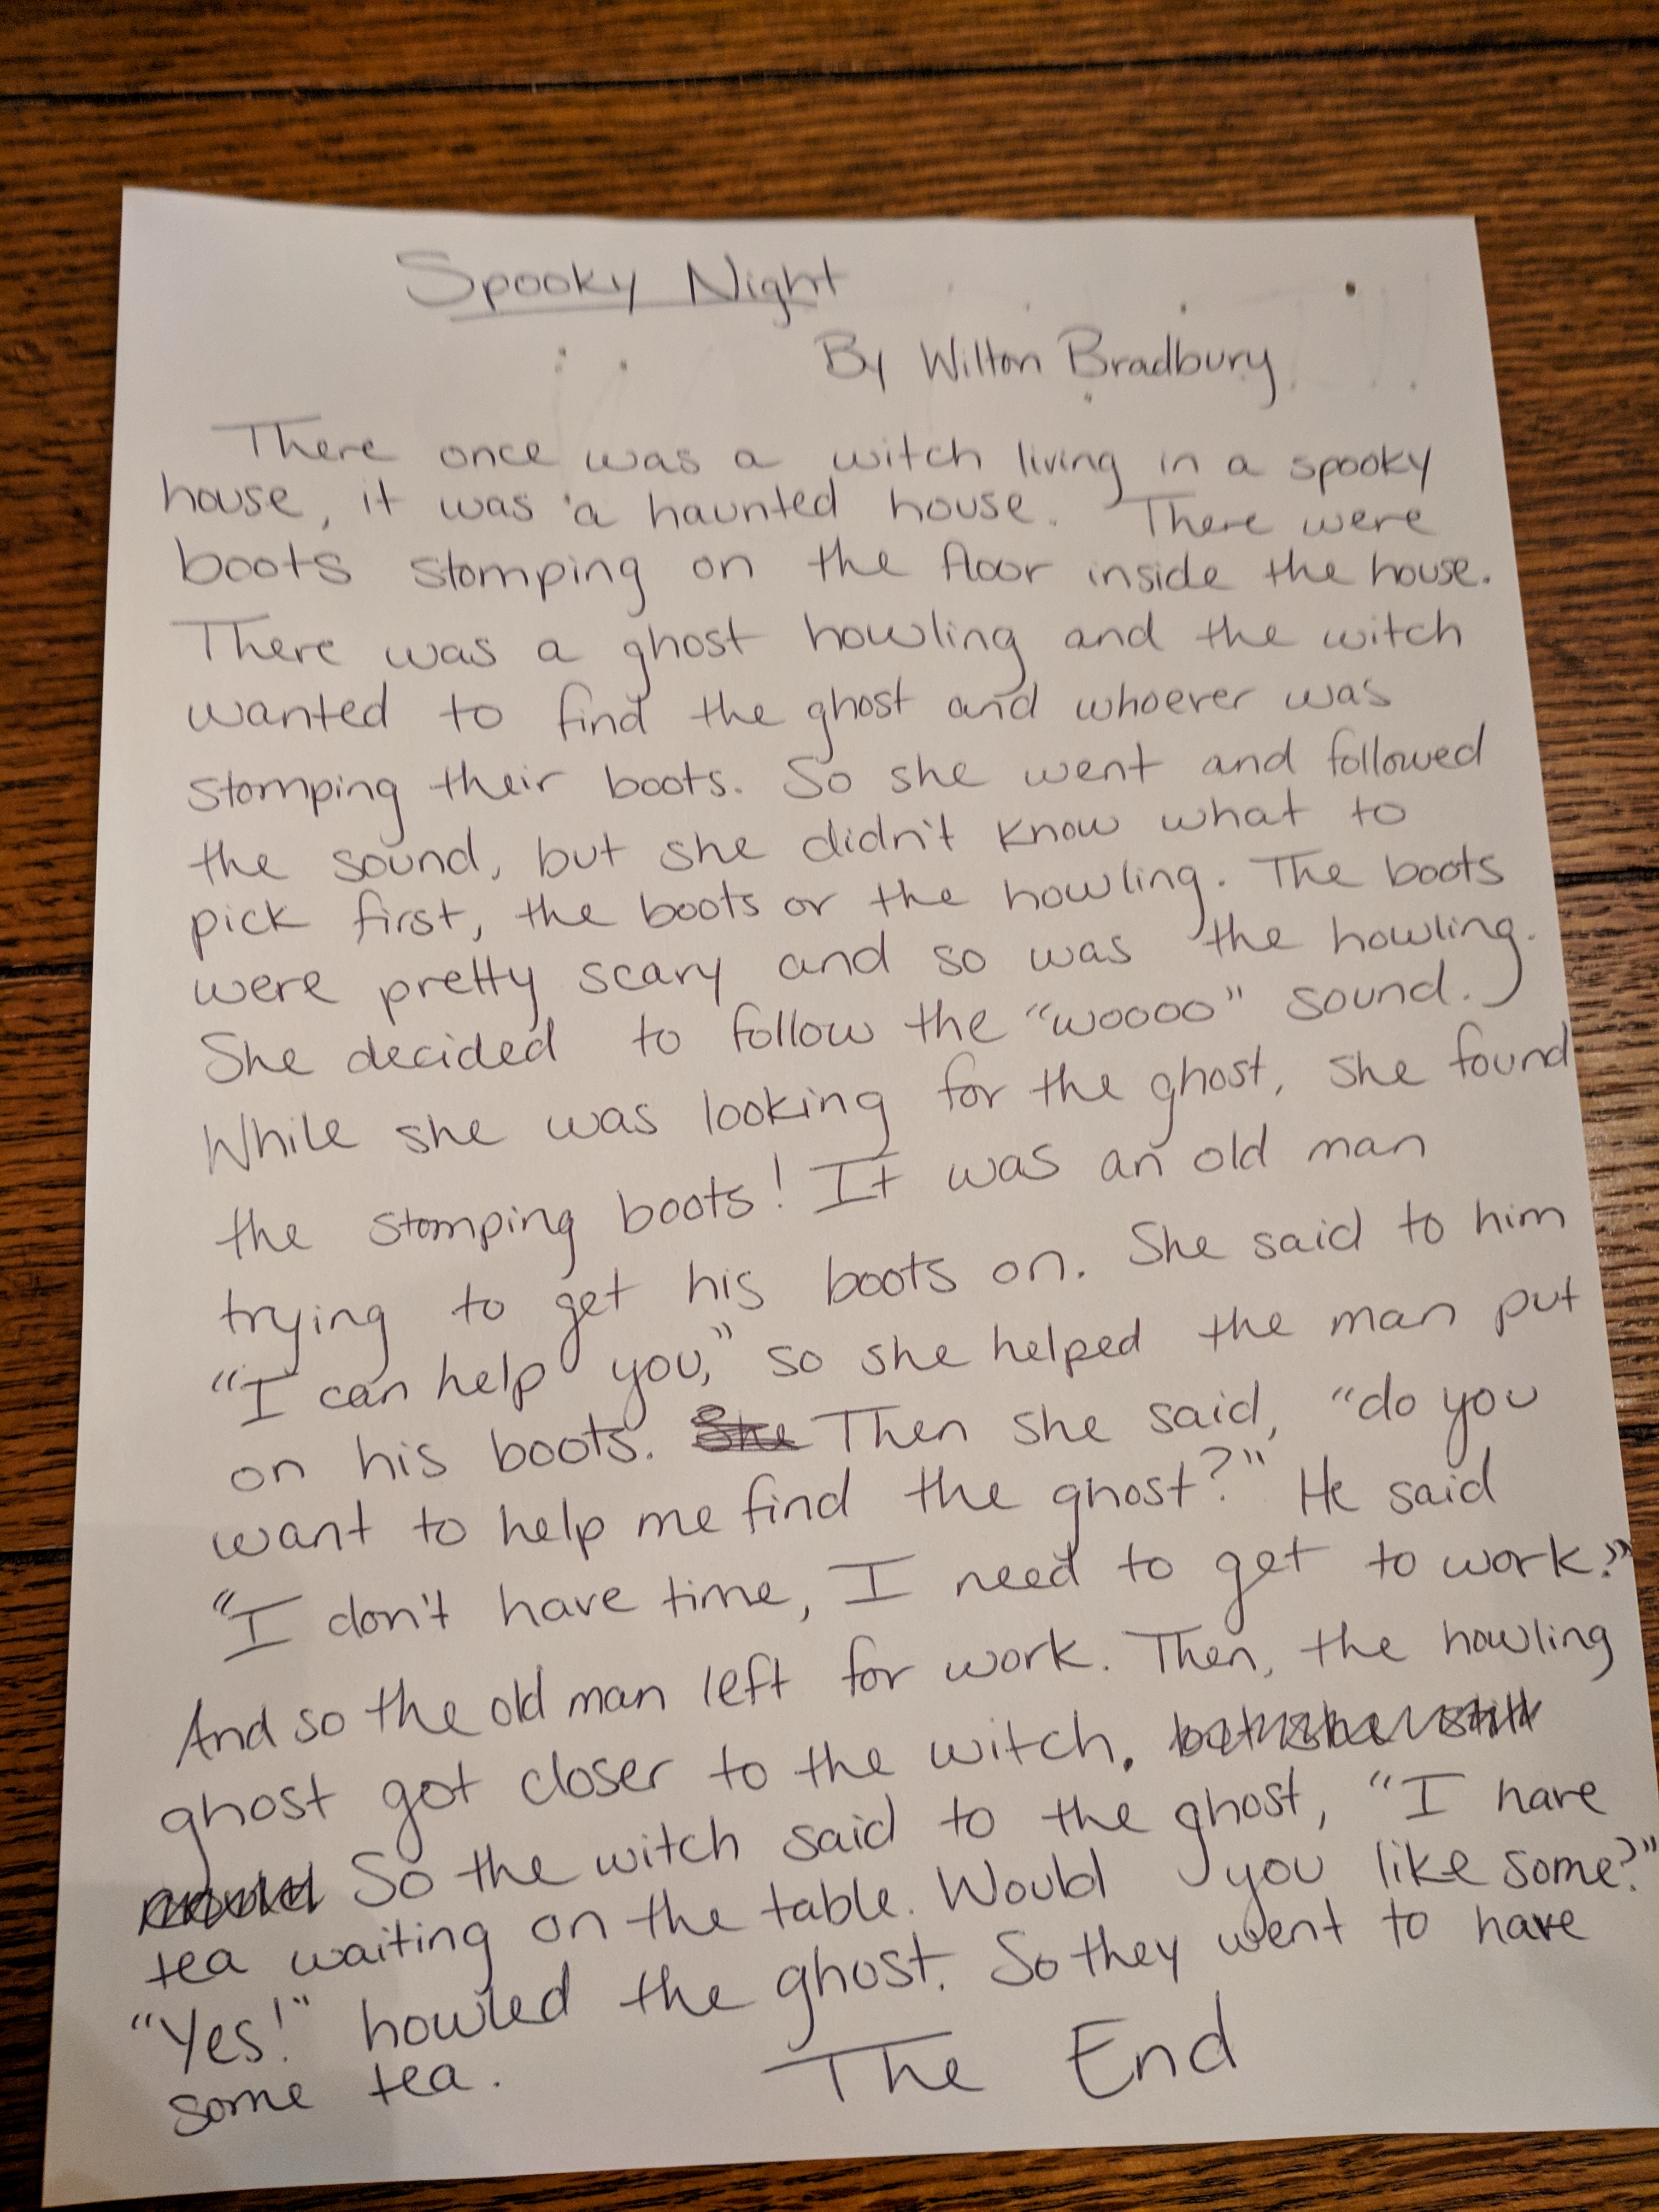 Spooky Night
By Wilton Bradbury
There once was a witch living in a spooky
house, it was a haunted house. There were
boots stomping on the floor inside the house.
There was a ghost howling and the witch
wanted to find the ghost and whoever was
stomping their boots. So she went and followed
the sound, but she didn't know what to
pick first, the boots or the howling. The boots
were pretty scary and so was the howling.
She decided to follow the "woooo" sound.
While she was looking for the ghost, she found
the stomping boots! It was an old man
trying to get his boots on. She said to him
"I can help you," so she helped the man put
on his boots. She Then she said, "do you
want to help me find the ghost?" He said
"I don't have time, I need to get to work."
And so the old man left for work. Then, the howling
ghost got closer to the witch. but she still
So the witch said to the ghost, "I have
tea waiting on the table. Would you like some?"
"Yes!" howled the ghost. So they went to have
some tea.
The End